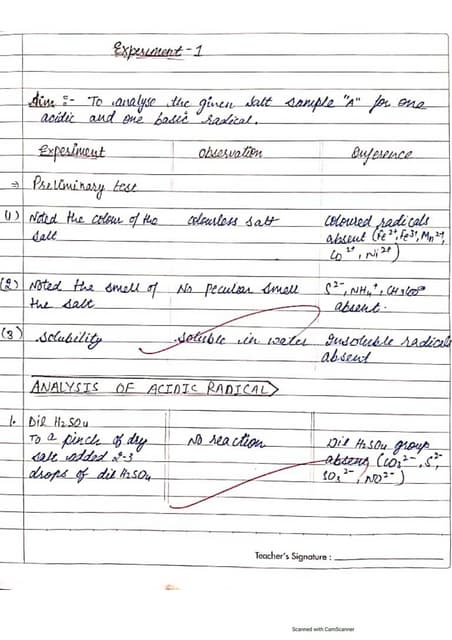 Experiment - 1
Aim :- To analyse the given salt sample "A" for one
acidic and one basic radical.
Experiment Observation Inference
⇒ Preliminary test
(1) Noted the colour of the colourless salt coloured radicals
salt absent (Fe²⁺, Fe³⁺, Mn²⁺,
Co²⁺, Ni²⁺)
(2) Noted the smell of No peculiar smell S²⁻, NH₄⁺, CH₃COO⁻
the salt absent.
(3) Solubility Soluble in water Insoluble radicals
absent
ANALYSIS OF ACIDIC RADICAL
1. Dil H₂SO₄
To a pinch of dry No reaction Dil H₂SO₄ group
salt added 2-3 absent (CO₃²⁻, S²⁻
drops of dil H₂SO₄ SO₃²⁻, NO²⁻)
Teacher's Signature :
Scanned with CamScanner